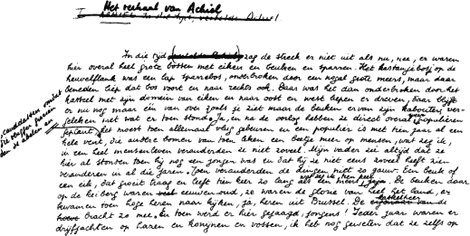 Het verhaal van Achiel
In die tijd zag de streek er niet uit als nu, nee, er waren
hier overal heel grote bossen met eiken en beuken en sparren. Het kastanjebosje op de
heuvelflank was een lap sparrebos, onderbroken door een nogal grote meers, maar daar
beneden liep dat bos voort en naar rechts ook. Daar was het dan onderbroken door het
kasteel met zijn domein van eiken en naar oost en west liepen er dreven,
er nu nog maar één van over zoals je ziet maar de beuken
geleken niet wat er toen stond. Ja, en na de oorlog hebben ze direct overal populieren
geplant, het moest toen allemaal vlug gebeuren en een populier is met tien jaar al een
hele vent, die andere bomen van toen, eiken een beetje meer op mensen, wat zeg ik,
in een heel mensenleven veranderden ze niet zoveel. Mijn vader zei altijd dat ze
hier al stonden toen hij nog een jongen was en dat hij ze niet eens zoveel heeft zien
veranderen in al die jaren. Toen veranderden de dingen niet zo gauw. Een beuk of
een eik, dat groeit traag en leeft tien keer zo lang De beuken daar
op de lei berg waren eeuwenoud, ze waren de glorie van het land, er
kwamen toen hoge heren naar kijken, ja, heren uit Brussel. De
bracht ze mee. En toen werd er hier gejaagd, jongens! Ieder jaar waren er
drijfjachten op hazen en konijnen en vossen, ik heb nog geweten dat ze zelfs op